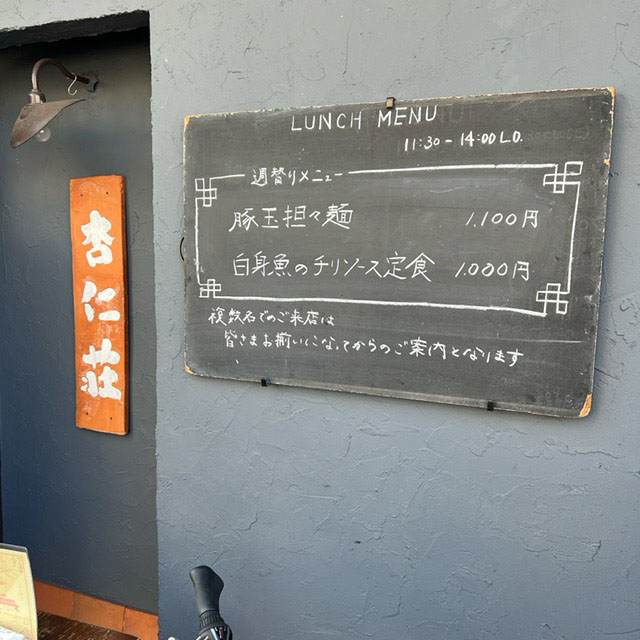 杏仁荘
LUNCH MENU
11:30 - 14:00 L.O.
週替りメニュー
豚玉担々麺 1,100円
白身魚のチリソース定食 1,000円
複数名でのご来店は
皆さまお揃いになってからのご案内となります